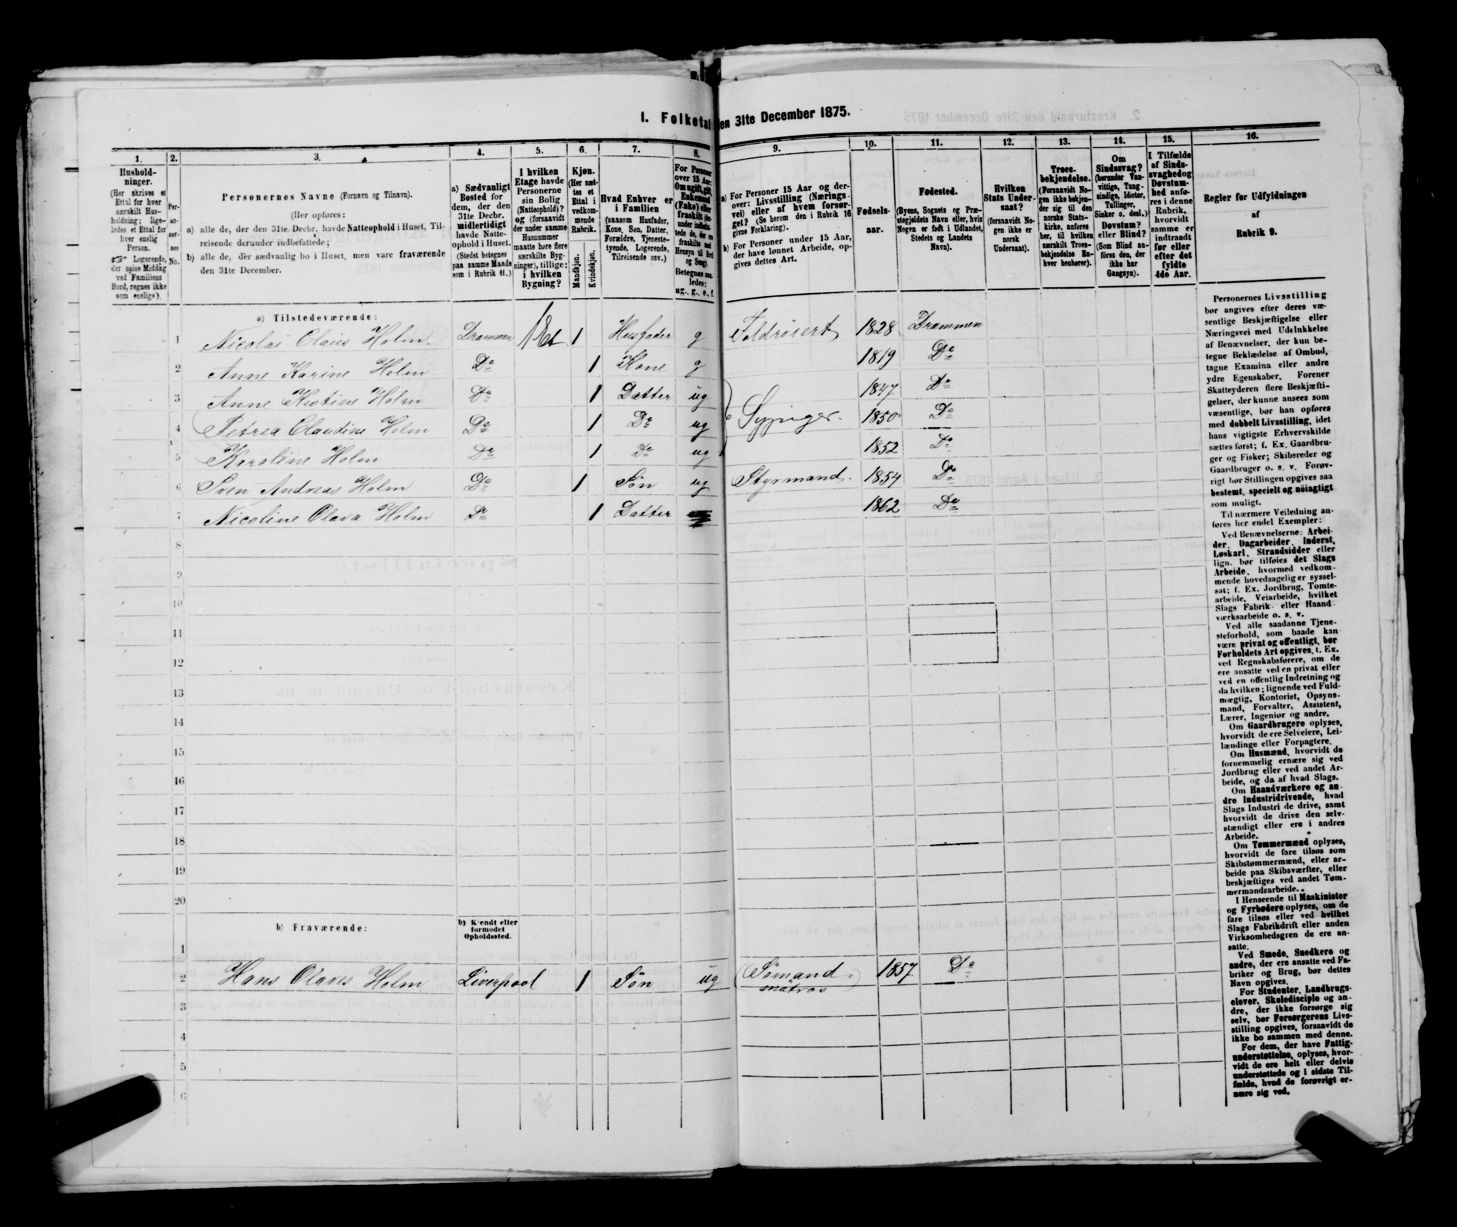 I. Folketal den 31te December 1875.
1. 2. 3. 4. 5. 6. 7. 8. 9. 10. 11. 12. 13. 14. 15. 16.
Husholdninger.
(Her skrives et Ettal for hver særskilt Husholdning; ligeledes et Ettal for hver enslig Person.
☞ Logerende, der spise Middag ved Familiens Bord, regnes ikke som enslige).
Personernes No.
Personernes Navne (Fornavn og Tilnavn).
(Her opføres:
a) alle de, der den 31te Decbr. havde Natteophold i Huset, Tilreisende derunder indbefattede;
b) alle de, der sædvanlig bo i Huset, men vare fraværende den 31te December.
a) Sædvanligt Bosted for dem, der den 31te Decbr. midlertidigt havde Natteophold i Huset.
(Stedet betegnes paa samme Maade som i Rubrik 11.)
I hvilken Etage havde Personerne sin Bolig (Natteophold)?
og (forsaavidt der under samme Husnummer maatte flere særskilte Bygninger), tillige: i hvilken Bygning?
Kjøn.
(Her sættes et Ettal i vedkommende Rubrik.
Mandkjøn. Kvindekjøn.
Hvad Enhver er i Familien
(saasom Husfader, Kone, Søn, Datter, Forældre, Tjenestetyende, Logerende, Tilreisende osv.)
For Personer over 15 Aar: Om ugift, gift, Enkemand (Enke) eller fraskilt
Betegnes saaledes: ug., g., e., f.
a) For Personer 15 Aar og derover: Livsstilling (Næringsvei) eller af hvem forsørget? (Se herom den i Rubrik 16 givne Forklaring).
b) For Personer under 15 Aar, der have lønnet Arbeide, opgives dettes Art.
Fødselsaar.
Fødested.
(Byens, Sognets og Præstegjeldets Navn eller, hvis Nogen er født i Udlandet, Stedets og Landets Navn).
Hvilken Stats Undersaat?
(forsaavidt Nogen ikke er norsk Undersaat).
Troesbekjendelse.
(Forsaavidt Nogen ikke bekjender sig til den norske Statskirke, anføres her, til hvilken særskilt Troesbekjendelse Enhver henhører).
Om Sindssvag?
(herunder Vanvittige, Tungsindige, Idioter, Tullinger, Sinker o. desl.)
Døvstum? eller Blind?
(Som Blind anføres den, der ikke har Gangsyn).
I Tilfælde af Sindssvaghed og Døvstumhed anføres i denne Rubrik, hvorvidt samme er indtraadt før eller efter det fyldte 4de Aar.
Regler for Udfyldningen af Rubrik 9.
a) Tilstedeværende:
1 Nicolai Claus Holm. Drammen 1 Et 1 Husfader g Toldroiert 1828 Drammen
2 Anne Karine Holm Do 1 Kone g 1819 Do
3 Anne Kistine Holm Do 1 Datter ug 1847 Do
4 Petrea Claudine Holm Do 1 Do ug Sypiger. 1850 Do
5 Karoline Holm Do 1 Do ug 1852 Do
6 Sven Andreas Holm Do 1 Søn ug Styrmand. 1854 Do
7 Nicoline Olava Holm Do 1 Datter 1862 Do
8
9
10
11
12
13
14
15
16
17
18
19
20
b) Fraværende:
b) Kjendt eller formodet Opholdssted.
1
2 Hans Olaves Holm Liverpool 1 Søn ug Sømand. 1857. Do
matros
3
4
5
6
Personernes Livsstilling
bør angives efter deres væ-
sentlige Beskjæftigelse eller
Næringsvei med Udelukkelse
af Benævnelser, der kun be-
tegne Beklædelse af Ombud,
tagne Examina eller andre
ydre Egenskaber. Forener
Skatteyderen flere Beskjæfti-
gelser, der kunne ansees som
væsentlige, bør han opføres
med dobbelt Livsstilling, idet
hans vigtigste Erhvervskilde
sættes først; f. Ex. Gaardbru-
ger og Fisker; Skibsreder og
Gaardbruger o. s. v. Forøv-
rigt bør Stillingen opgives saa
bestemt, specielt og nøiagtigt
som muligt.
Til nærmere Veiledning an-
føres her endel Exempler:
Ved Benævnelserne: Arbei-
der, Dagarbeider, Inderst,
Løskarl, Strandsidder eller
lign. bør tilføies det Slags
Arbeide, hvormed vedkom-
mende hovedsagelig er syssel-
sat; f. Ex. Jordbrug, Tomte-
arbeide, Veiarbeide, hvilket
Slags Fabrik- eller Haand-
værksarbeide o. s. v.
Ved alle saadanne Tjene-
steforhold, som baade kan
være privat og offentligt, bør
Forholdets Art opgives, t. Ex.
ved Regnskabsførere, om de
ere ansatte ved en privat eller
ved en offentlig Indretning og
da hvilken; lignende ved Fuld-
mægtig, Kontorist, Opsyns-
mand, Forvalter, Assistent,
Lærer, Ingeniør og andre.
Om Gaardbrugere oplyses,
hvorvidt de ere Selveiere, Lei-
lændinge eller Forpagtere.
Om Husmænd, hvorvidt de
fornemmelig ernære sig ved
Jordbrug eller ved andet Ar-
beide, og da af hvad Slags.
Om Haandværkere og an-
dre Industridrivende, hvad
Slags Industri de drive, samt
hvorvidt de drive den selv-
stændigt eller ere i andres
Arbeide.
Om Tømmermænd oplyses,
hvorvidt de fare tilsøs som
Skibstømmermænd, eller ar-
beide paa Skibsværfter, eller
beskjæftiges ved andet Tøm-
mermandsarbeide.
I Henseende til Maskinister
og Fyrbødere oplyses, om de
fare tilsøs eller ved hvilket
Slags Fabrikdrift eller anden
Virksomhedsgren de ere an-
satte.
Ved Smede, Snedkere og
andre, der ere ansatte ved Fa-
briker og Brug, bør dettes
Navn opgives.
For Studenter, Landbrugs-
elever, Skoledisciple og an-
dre, der ikke forsørge sig
selv, bør Forsørgerens Livs-
stilling opgives, forsaavidt de
ikke bo sammen med denne.
For dem, der have Fattig-
understøttelse, oplyses, hvor-
vidt de ere helt eller delvis
understøttede og i sidste Til-
fælde, hvad de forøvrigt er-
nære sig ved.